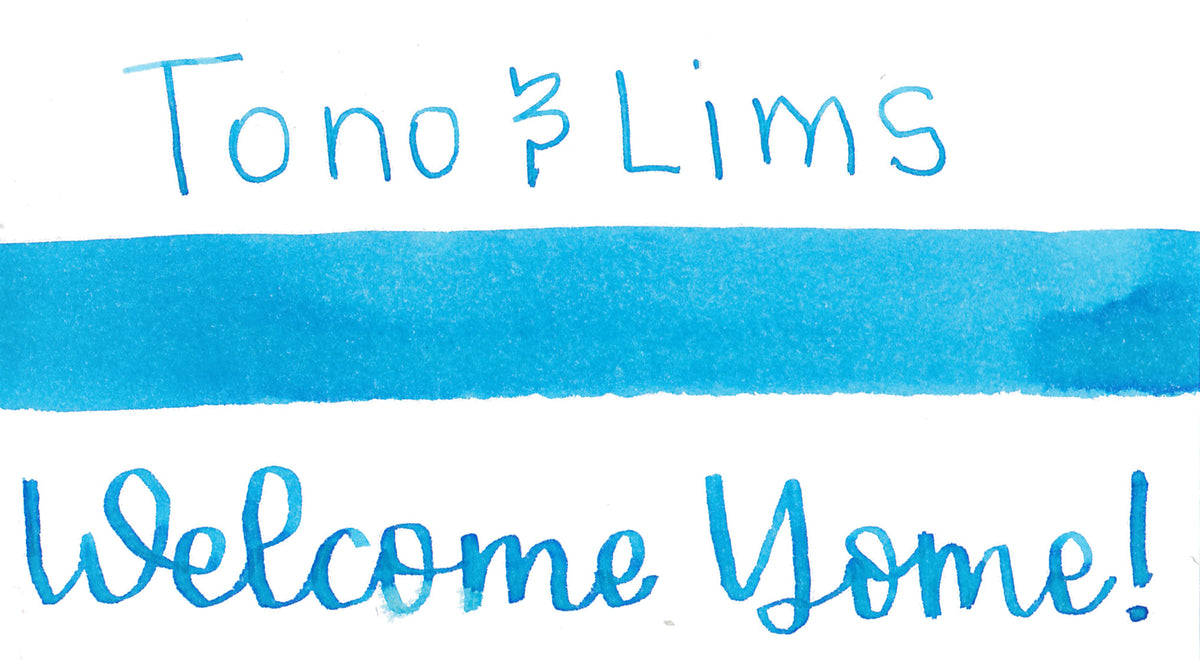 Tono & Lims
Welcome Yome!